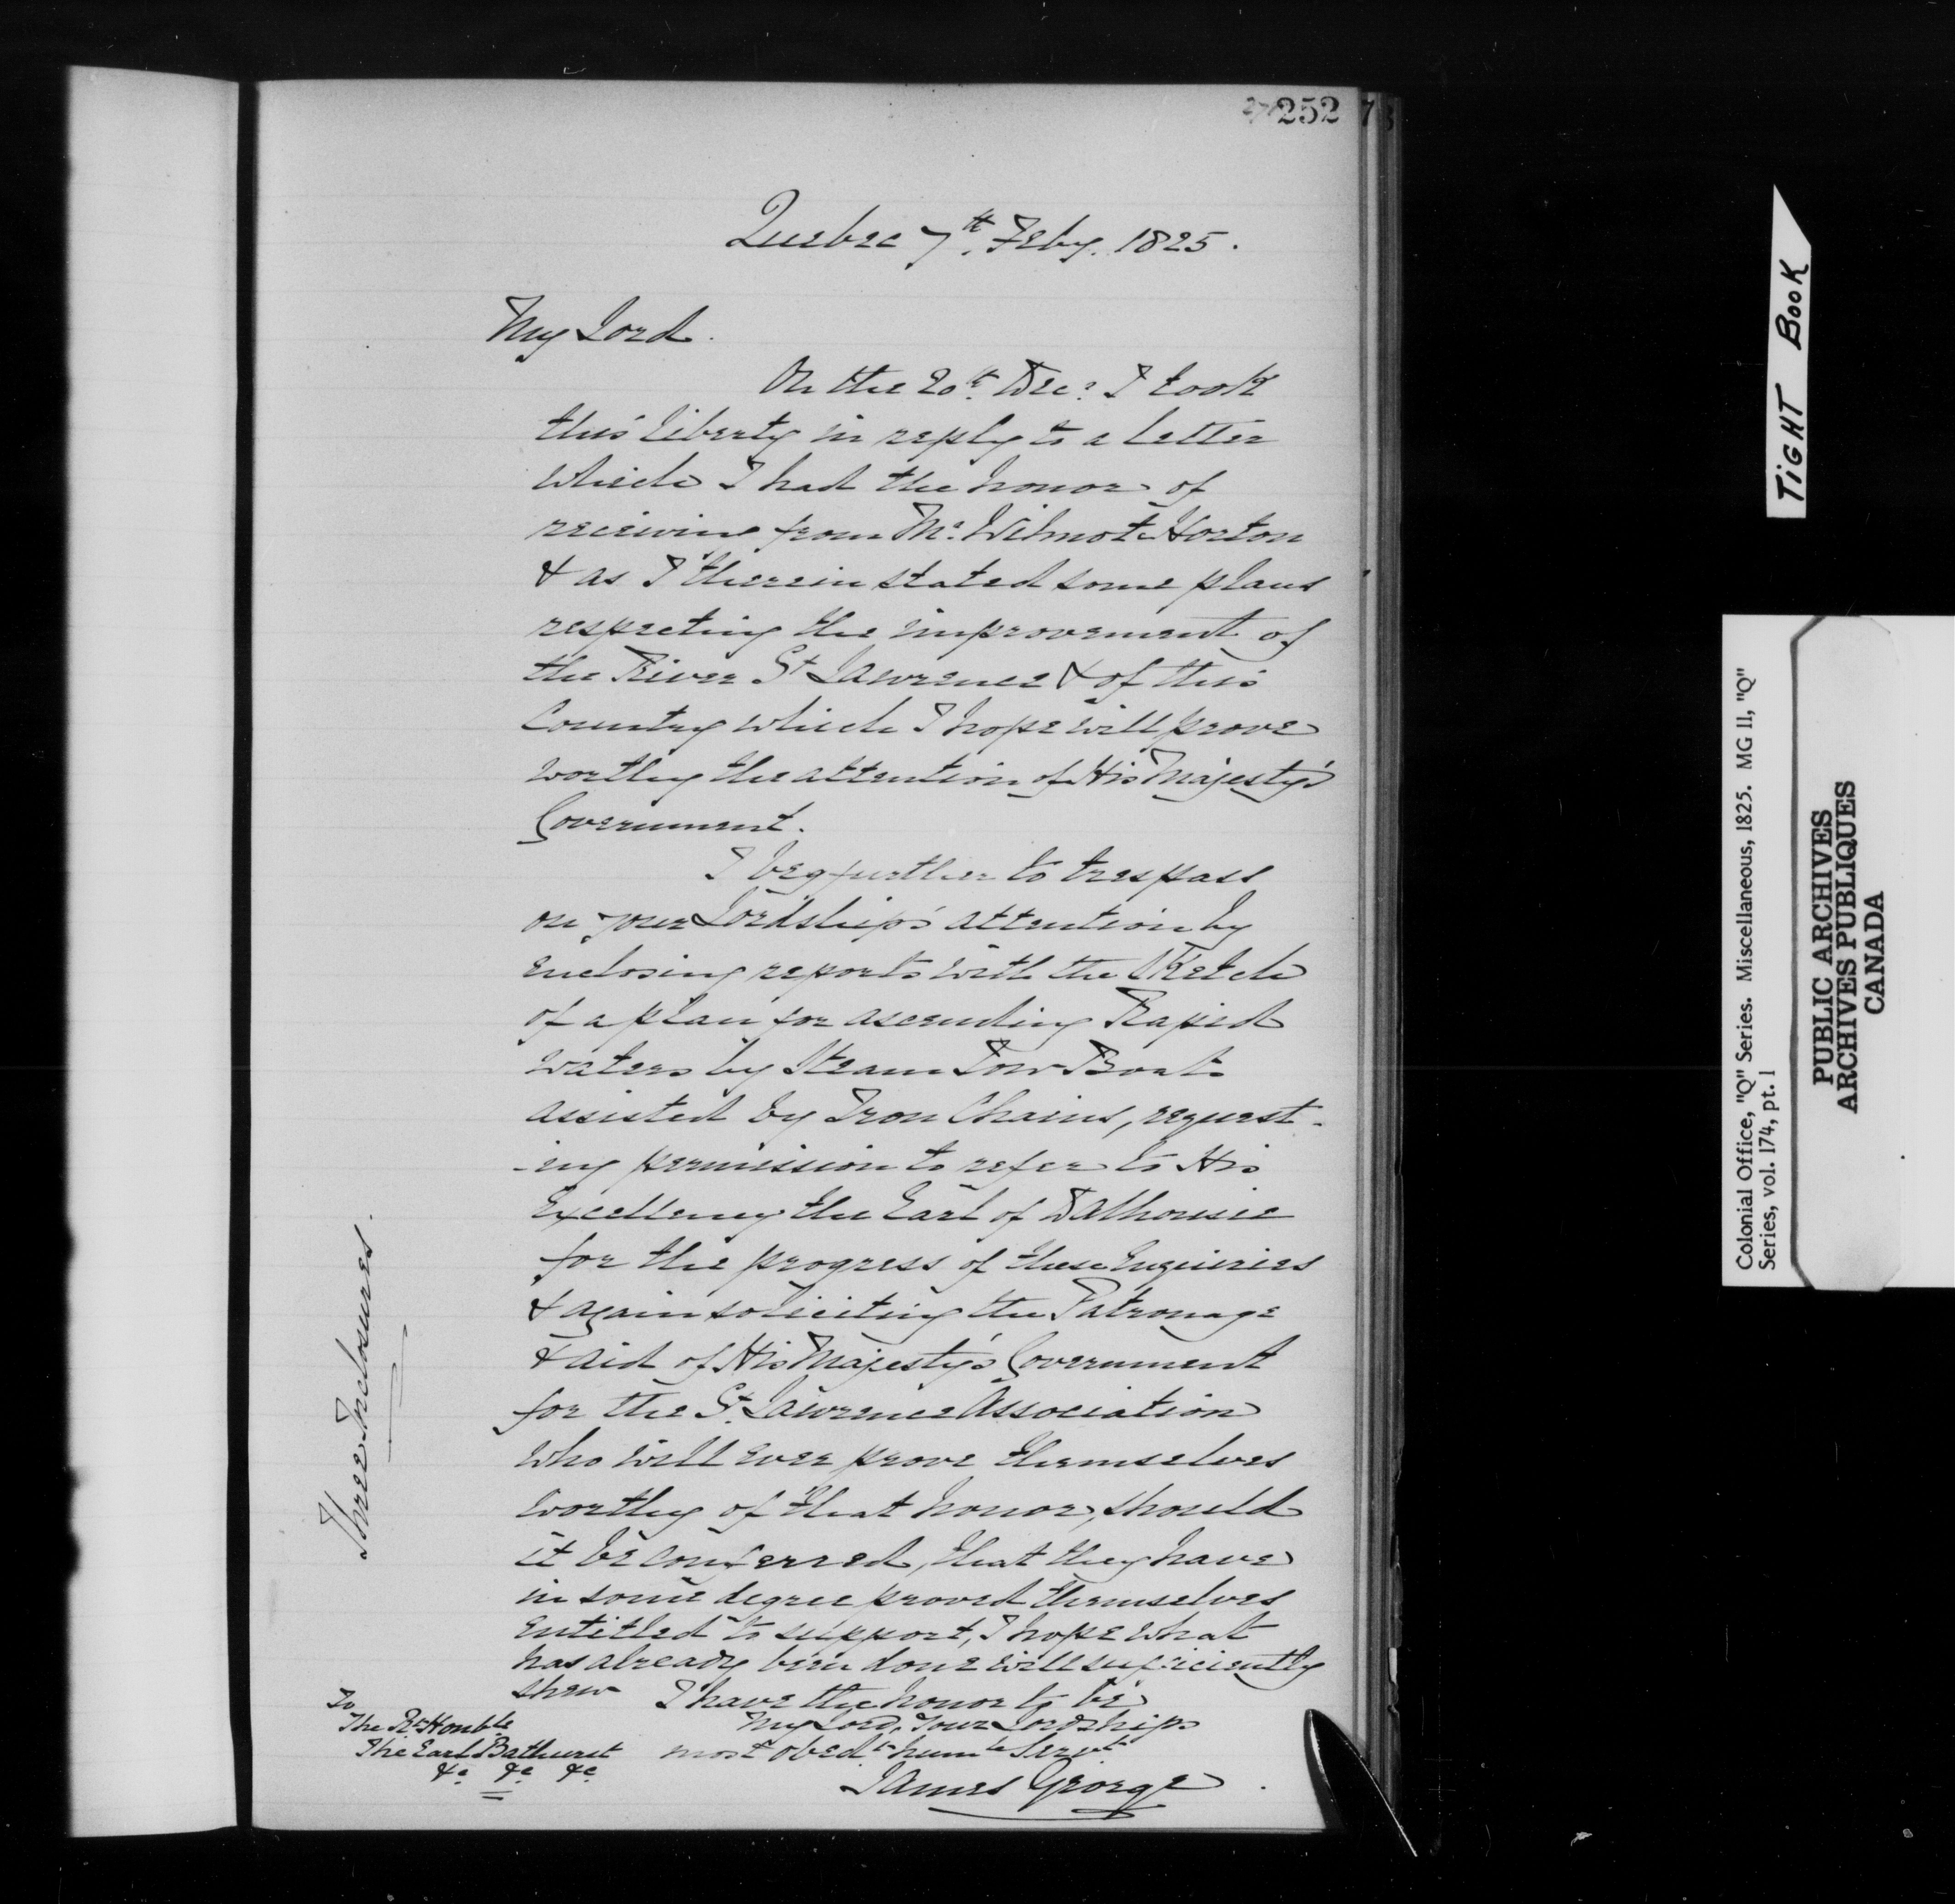 252
Quebec 7th. Feby. 1825.
My Lord.
On the 20th. Decr. I took
this liberty in reply to a letter
which I had the honor of
receiving from Mr. Wilmot Horton
& as I therein stated some plans
respecting the improvement of
the River St Lawrence & of this
Country which I hope will prove
worthy the attention of His Majesty's
Government.
I beg further to trespass
on your Lordship's attention by
enclosing reports with the Sketch
of a plan for ascending Rapid
waters by Steam Tow Boats
assisted by Iron Chains, request-
-ing permission to refer to His
Excellency the Earl of Dalhousie
for the progress of these Enquiries
& again soliciting the Patronage
& aid of His Majesty's Government
for the St. Lawrence Association
who will ever prove themselves
worthy of that honor, should
it be conferred, that they have
in some degree proved themselves
entitled to support, I hope what
has already been done will sufficiently
shew
I have the honor to be
My Lord, Your Lordships
most obedt. humle Servt
James George
To
The Rt Honble
The Earl Bathurst
&c &c &c
Three Inclosures.
TIGHT BOOK
Colonial Office, "Q" Series. Miscellaneous, 1825. MG 11, "Q"
Series, vol. 174, pt. 1
PUBLIC ARCHIVES
ARCHIVES PUBLIQUES
CANADA